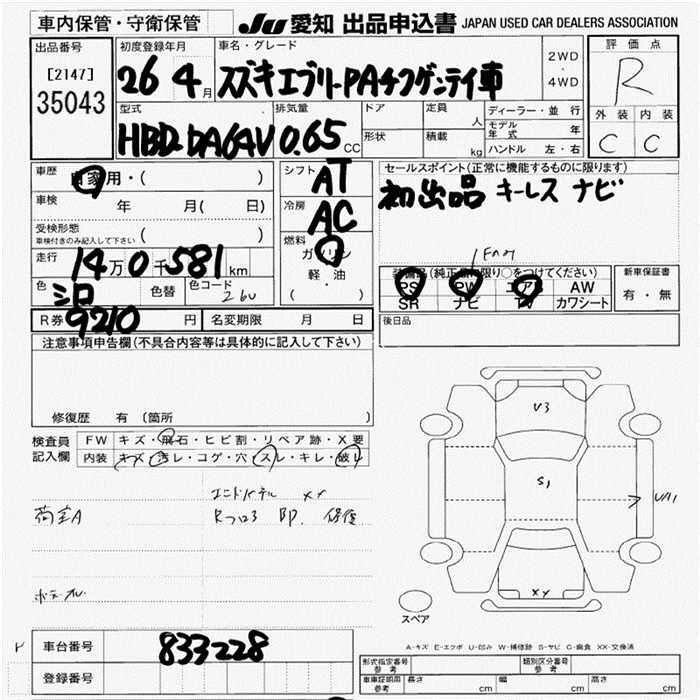 車内保管・守衛保管
JU 愛知 出品申込書 JAPAN USED CAR DEALERS ASSOCIATION
出品番号
[2147]
35043
初度登録年月
26 4月
車名・グレード
スズキエブリーPAチフゲンテイ車
2WD
・
4WD
評価点
R
外装 内装
C C
型式
HBD-DA64V
排気量
0.65 CC
ドア
形状
定員
人
積載
kg
ディーラー・並行
モデル年式 年
ハンドル 左・右
車歴
自家用・( )
車検
年 月( 日)
受検形態
車検付きのみ記入して下さい ( )
走行
14万0千581km
色
シロ
色替
色コード
26U
シフト
AT
冷房
AC
燃料
ガソリン
軽油
( ・ )
セールスポイント(正常に機能するものに限ります)
初出品 キーレス ナビ
装備品(純正品に限り○をつけてください)
PS PW AB AW
SR ナビ TV カワシート
新車保証書
有・無
R券
9210円
名変期限 月 日
後日品
注意事項申告欄(不具合内容等は具体的に記入して下さい)
修復歴 有(箇所 )
検査員
記入欄
FW キズ・飛石・ヒビ割・リペア跡・X要
内装 キズ・汚レ・コゲ・穴・スレ・キレ・破レ
荷室A
XX
U3
S1
UA1
XX
スペア
A-キズ E-エクボ U-凹み W-補修跡 S-サビ C-腐食 XX-交換済
車台番号
833228
登録番号
形式指定番号
参考
類別区分番号
参考
車庫証明用
参考
長さ cm
幅 cm
高さ cm